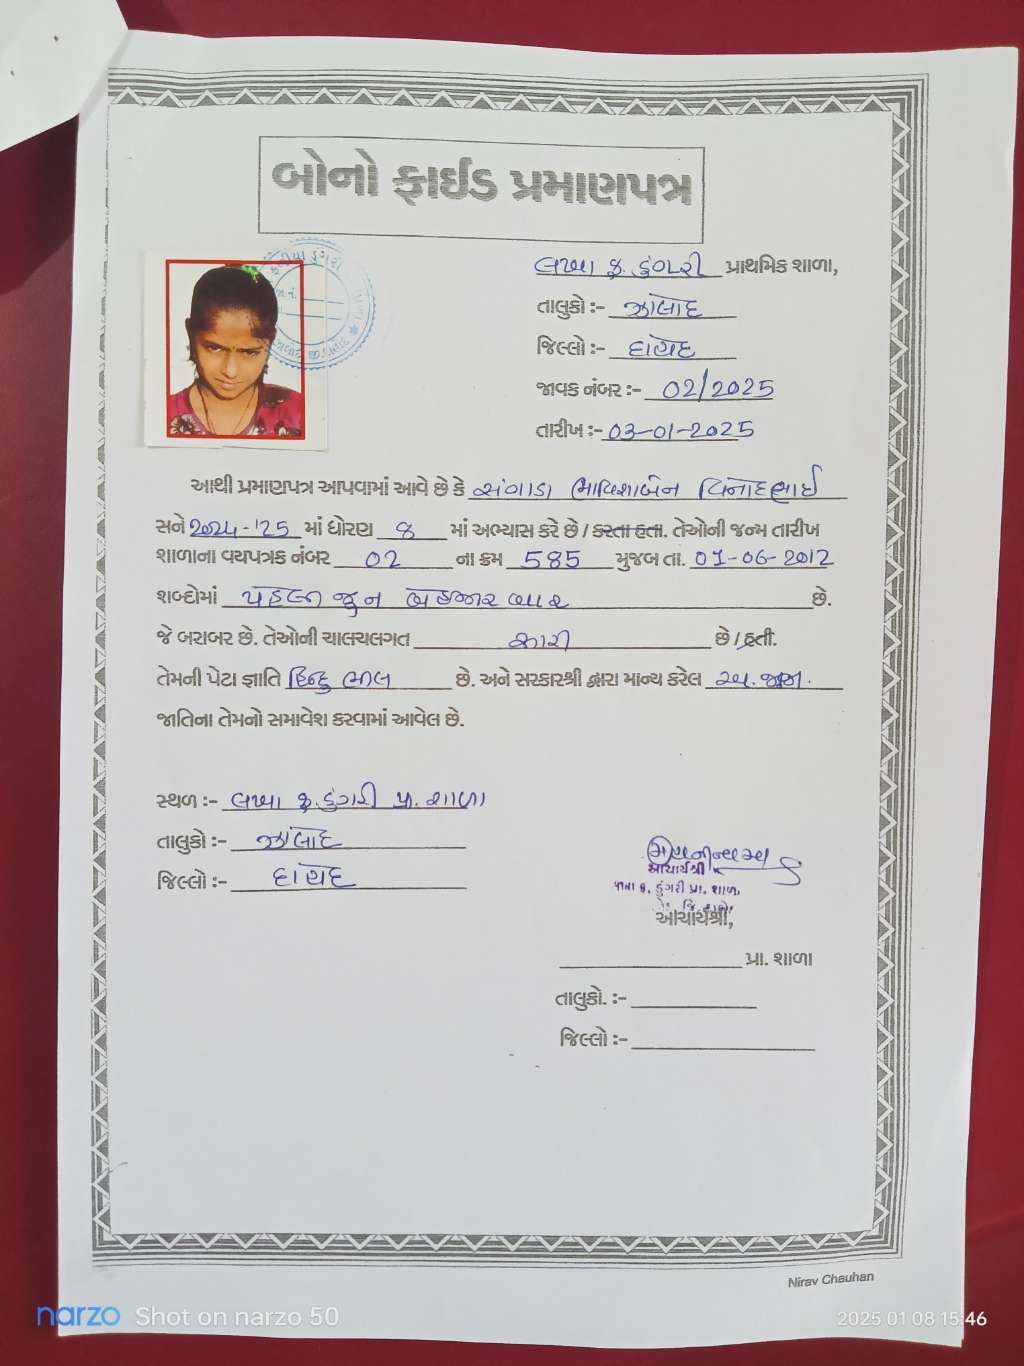 બોનો ફાઈડ પ્રમાણપત્ર
લખા ફ. ડુંગરી પ્રાથમિક શાળા,
તાલુકો :- ઝાલોદ
જિલ્લો :- દાહોદ
જાવક નંબર :- 02/2025
તારીખ :- 03-01-2025
આથી પ્રમાણપત્ર આપવામાં આવે છે કે સંગાડા ભાવિશાબેન વિનોદભાઈ
સને 2024-'25 માં ધોરણ 8 માં અભ્યાસ કરે છે / કરતા હતા. તેઓની જન્મ તારીખ
શાળાના વયપત્રક નંબર 02 ના ક્રમ 585 મુજબ તા. 01-06-2012
શબ્દોમાં પહેલી જુન બેહજાર બાર છે.
જે બરાબર છે. તેઓની ચાલચલગત સારી છે / હતી.
તેમની પેટા જ્ઞાતિ હિન્દુ ભીલ છે. અને સરકારશ્રી દ્વારા માન્ય કરેલ અ. જજા.
જાતિના તેમનો સમાવેશ કરવામાં આવેલ છે.
સ્થળ :- લખા ફ. ડુંગરી પ્રા. શાળા
તાલુકો :- ઝાલોદ
જિલ્લો :- દાહોદ
આચાર્યશ્રી
ફ. ડુંગરી પ્રા. શાળા,
આચાર્યશ્રી,
પ્રા. શાળા
તાલુકો. :-
જિલ્લો :-
Nirav Chauhan
narzo Shot on narzo 50
2025 01 08 15:46